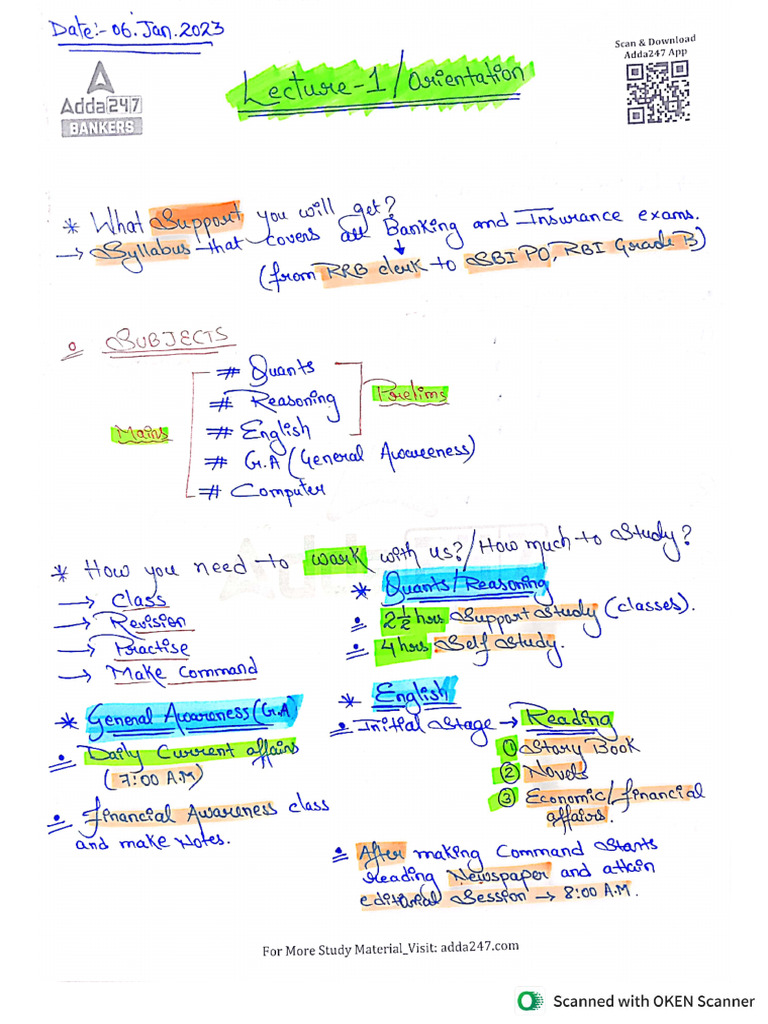 Date:- 06.Jan.2023
Scan & Download
Adda247 App
Adda247
BANKERS
Lecture-1/Orientation
* What Support you will get?
→ Syllabus that covers all Banking and Insurance exams.
(from RRB clerk to SBI PO, RBI Grade B)
SUBJECTS
# Quants
# Reasoning
Prelims
Mains
# English
# G.A (General Awareness)
# Computer
* How you need to work with us?/How much to Study?
→ Class
→ Revision
→ Practise
→ Make Command
* Quants/Reasoning
2 1/2 hrs Support Study (classes).
4 hrs Self Study.
* General Awareness (G.A)
Daily Current affairs
(7:00 A.M)
Financial Awareness class
and make Notes.
* English
Initial Stage → Reading
① Story Book
② Novels
③ Economic/financial
affairs.
After making Command Starts
reading Newspaper and attain
editorial Session → 8:00 A.M.
For More Study Material_Visit: adda247.com
Scanned with OKEN Scanner